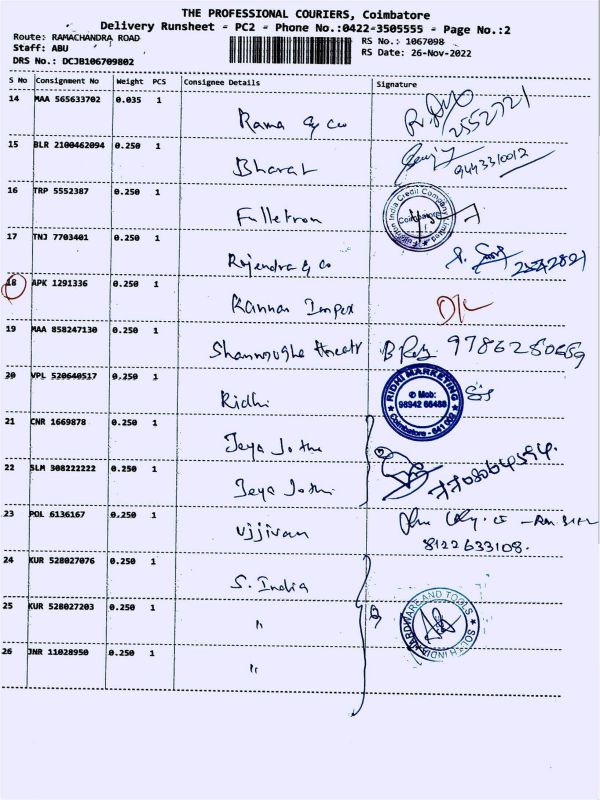 THE PROFESSIONAL COURIERS, Coimbatore
Delivery Runsheet - PC2 - Phone No.:0422-3505555 - Page No.:2
Route: RAMACHANDRA ROAD
Staff: ABU
DRS No.: DCJB106709802
RS No.: 1067098
RS Date: 26-Nov-2022
S No Consignment No Weight PCS Consignee Details Signature
14 MAA 565633702 0.035 1 Rama & co 2552721
15 BLR 2100462094 0.250 1 Bharat 9443310012
16 TRP 5552387 0.250 1 Fulletron India Credit Company Limited Coimbatore
17 TNJ 7703401 0.250 1 Rajendra & co
18 APK 1291336 0.250 1 Kannan Impex D/L
19 MAA 858247130 0.250 1 Shanmugha 9786250659
20 VPL 520640517 0.250 1 Ridhi RIDHI MARKETING Mob: 98942 66488 Coimbatore - 641 002
21 CNR 1669878 0.250 1 Jeya Jothi
22 SLM 308222222 0.250 1 Jeya Jothi
23 POL 6136167 0.250 1 Ujjivan 8122633108.
24 KUR 528027076 0.250 1 S. India
25 KUR 528027203 0.250 1 "
SOUTH INDIA HARDWARE AND TOOLS
26 JNR 11028950 0.250 1 "